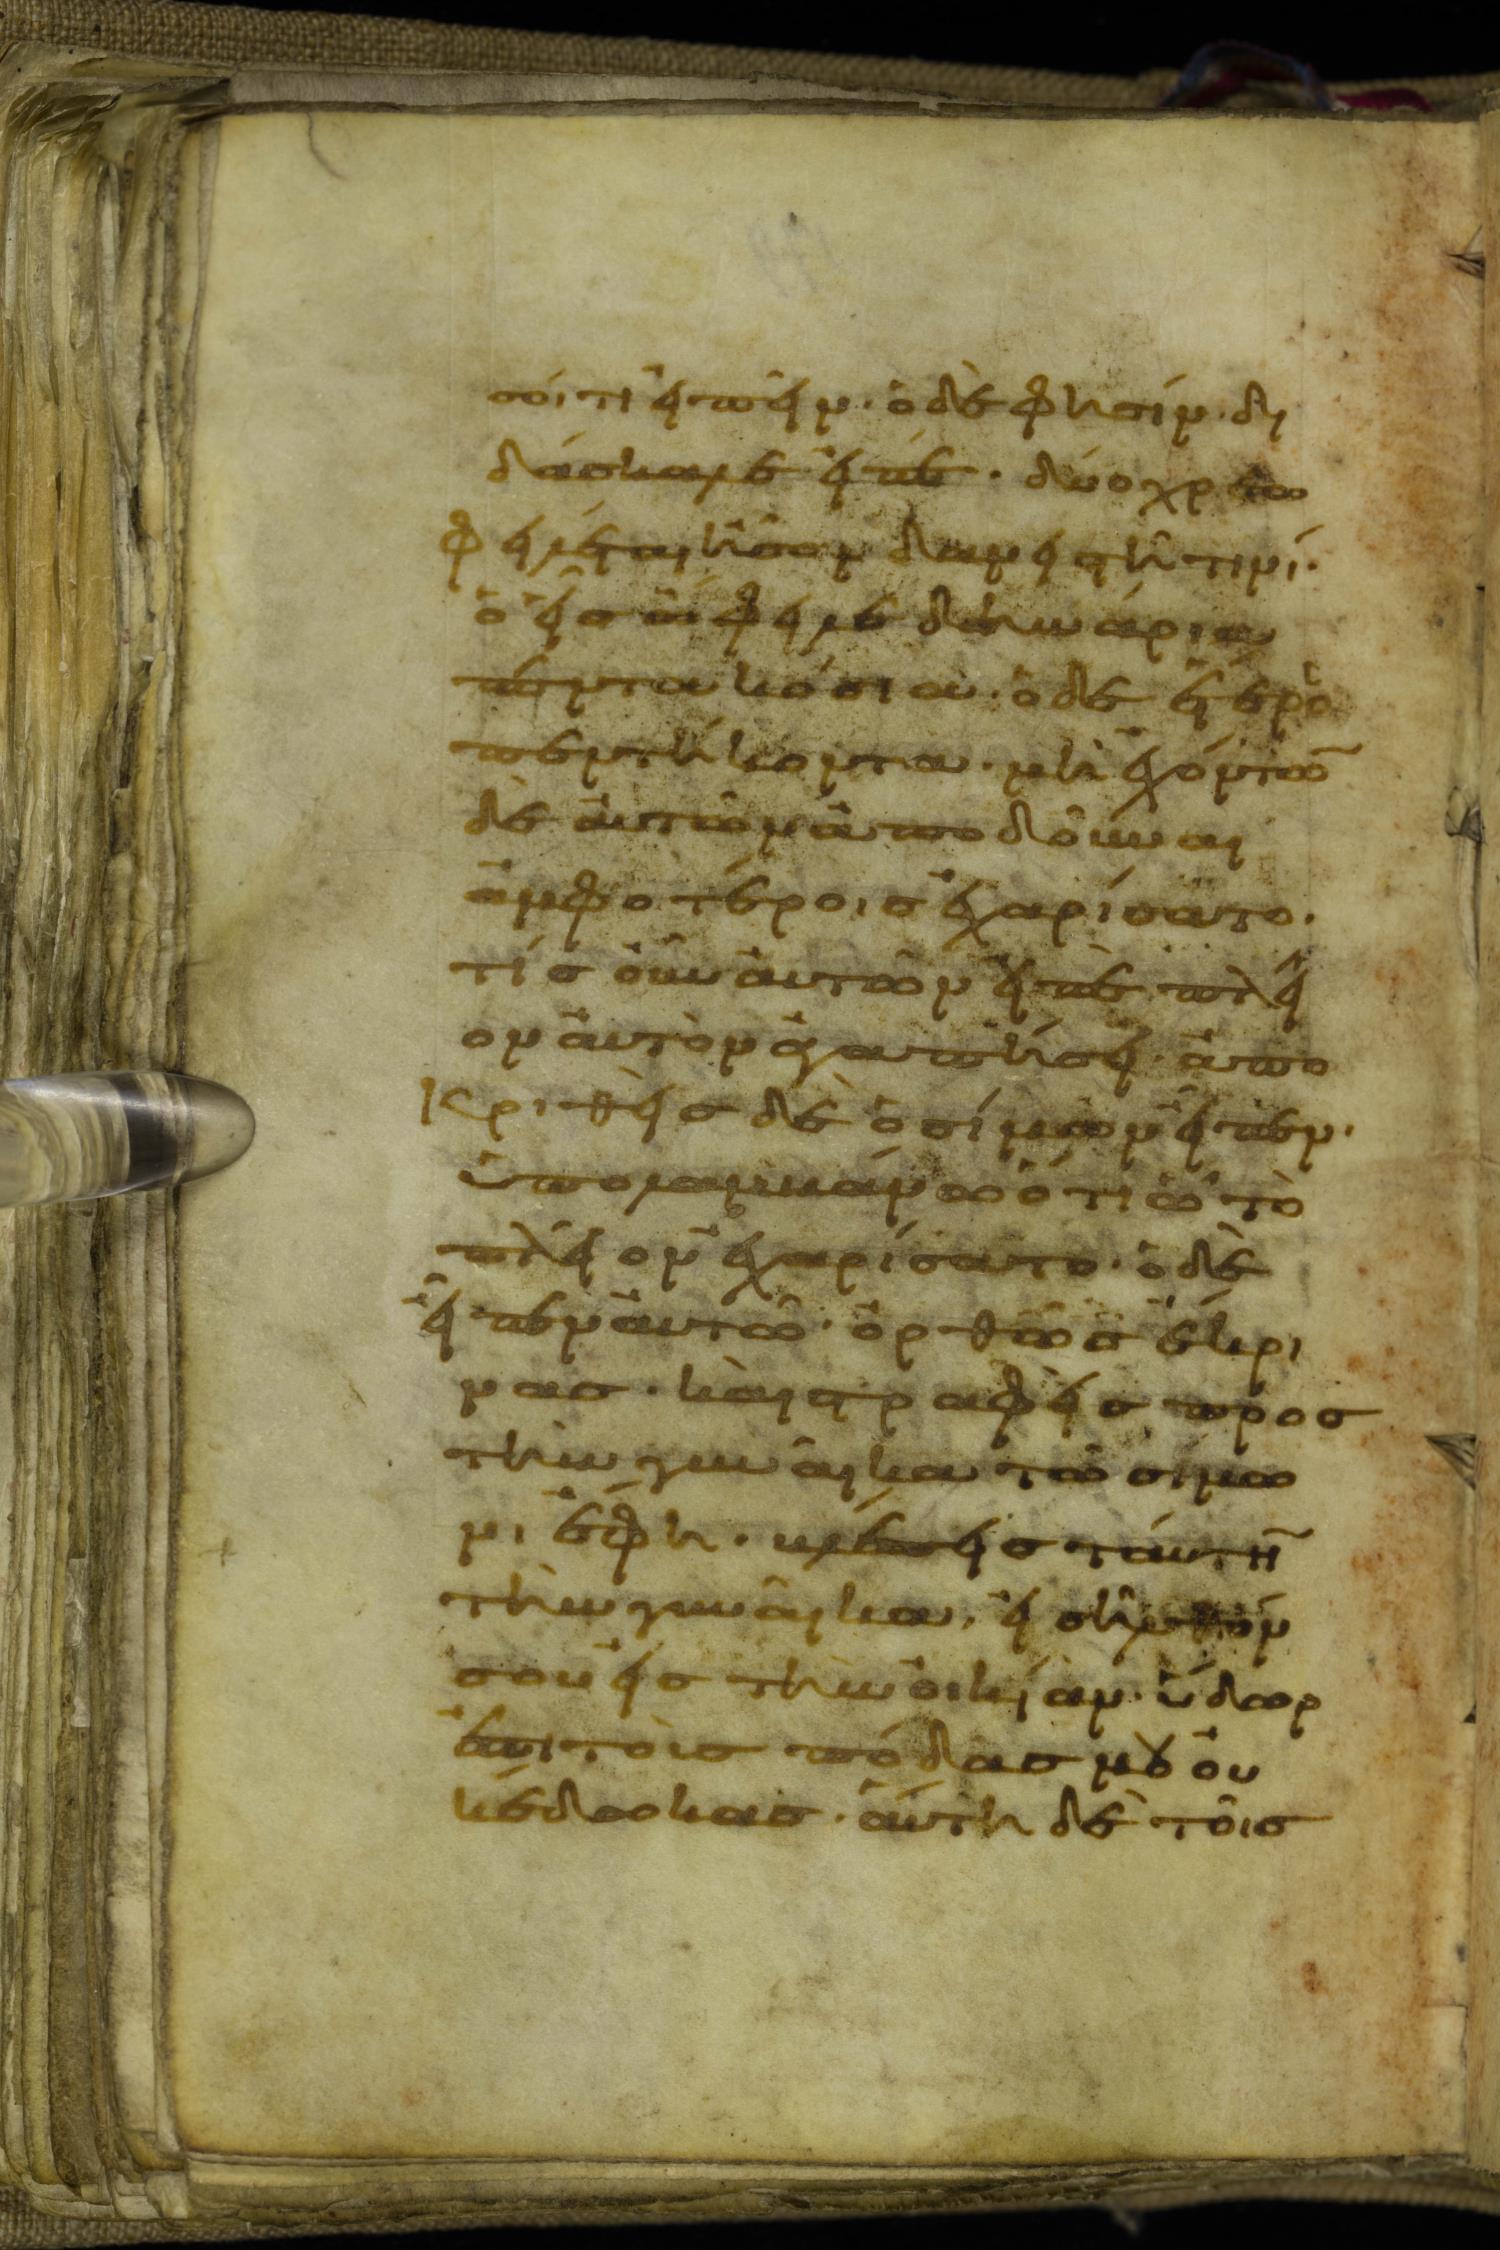 σόι τι ἐιπεῖν· ὁ δὲ φησίν· δι
δάσκαλε εἰπέ· δύο χρεω
φειλέται ἦσαν δανειστῆ τινί·
ὁ εἷς ὤφειλε δηνάρια
πεντακόσια· ὁ δὲ ἕτερο
πεντήκοντα· μὴ ἐχόντω̅
δὲ ἀυτῶν ἀποδοῦναι
ἀμφοτέροις ἐχαρίσατο·
τίς οὖν ἀυτῶν εἰπὲ πλεῖ
ον ἀυτὸν ἀγαπήσει· ἀπο
Κριθεὶς δὲ ὁ σίμων εἶπεν·
ὑπολαμβάνω ὅτι ὧ τὸ
πλεῖον ἐχαρίσατο· ὁ δὲ
εἶπεν ἀυτῶ· ὀρθῶς ἔκρι
νας· καὶ στραφεὶς πρὸς
τὴν γυναῖκα τῶ σίμω
νι ἔφη· βλέπεις ταύτη̅
τὴν γυναῖκα, εἰσῆλθόν
σου εἰς τὴν οἰκίαν· ὕδωρ
ἐπι τοὶς πόδας μου οὐ
κέδωκας· ἀύτη δὲ τοῖς